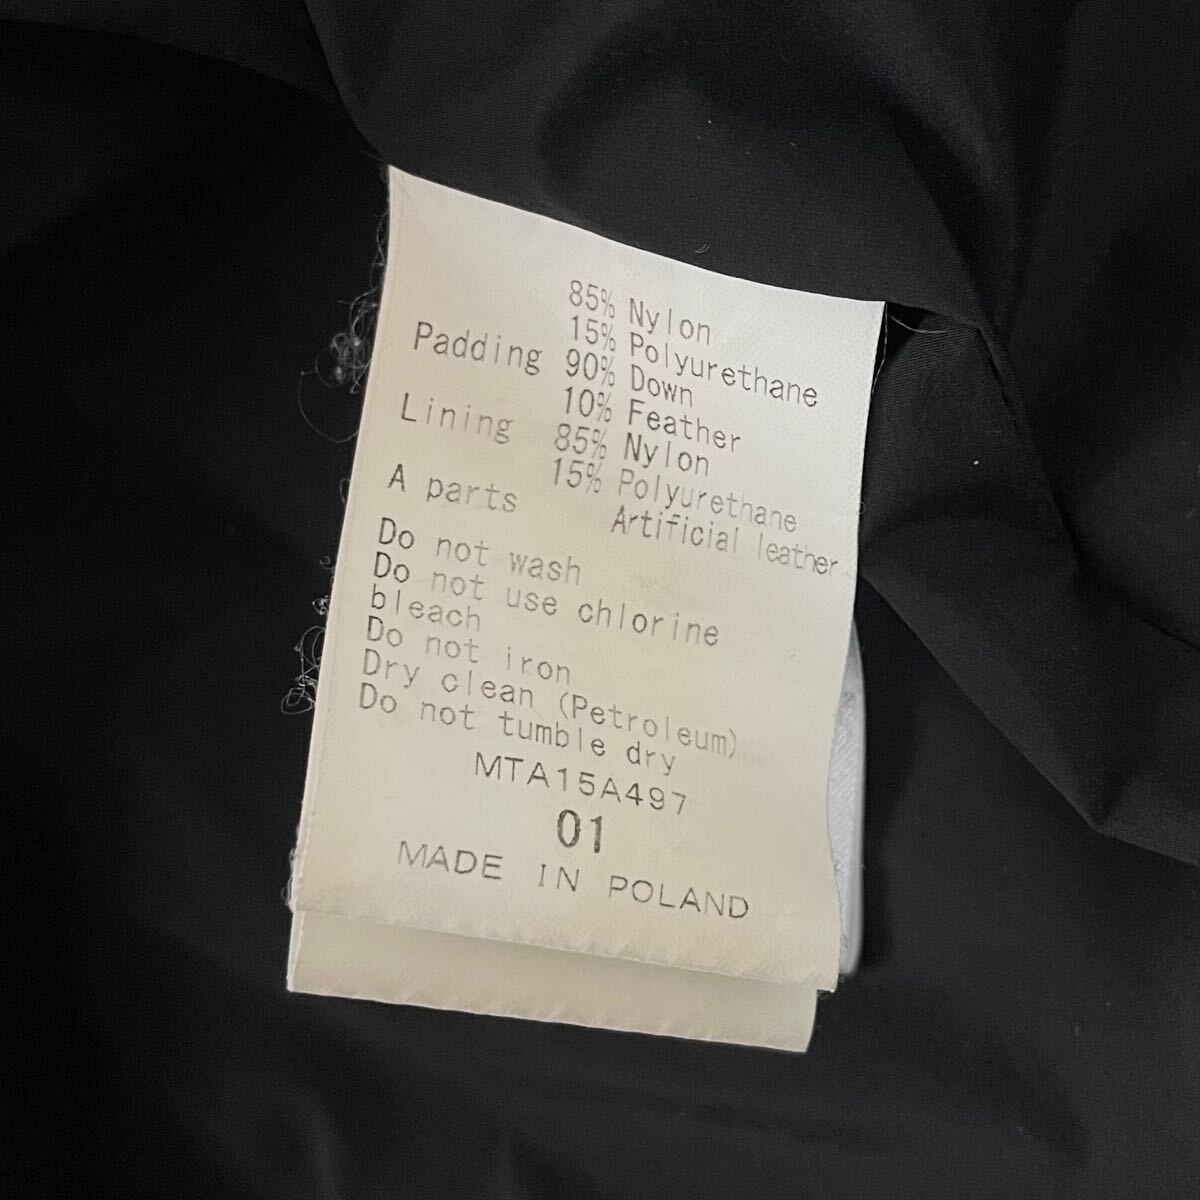 85% Nylon
15% Polyurethane
Padding 90% Down
10% Feather
Lining 85% Nylon
15% Polyurethane
A parts Artificial leather
Do not wash
Do not use chlorine
bleach
Do not iron
Dry clean (Petroleum)
Do not tumble dry
MTA15A497
01
MADE IN POLAND